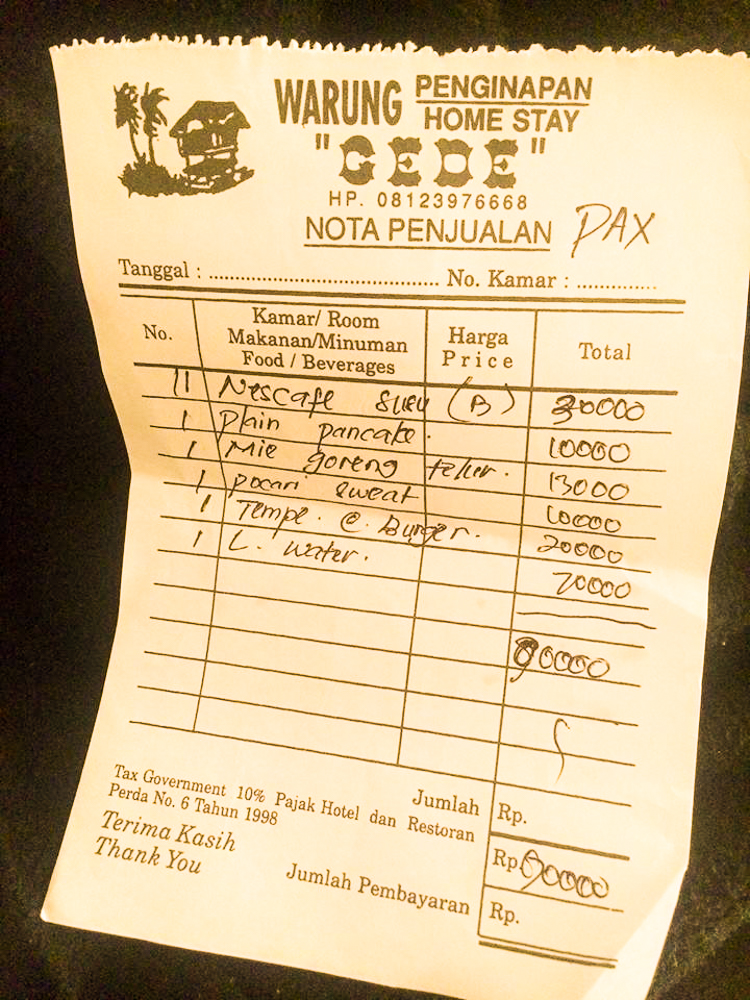 WARUNG PENGINAPAN
HOME STAY
"GEDE"
HP. 08123976668
NOTA PENJUALAN PAX
Tanggal : ........................................ No. Kamar : ..............
No. Kamar/ Room Makanan/Minuman Food / Beverages Harga Price Total
11 Nescafe susu (B) 30000
1 Plain pancake. 10000
1 Mie goreng telur. 13000
1 Pocari sweat 10000
1 Tempe. C. Burger. 20000
1 L. water. 70000
90000
Jumlah Rp.
Tax Government 10% Pajak Hotel dan Restoran
Perda No. 6 Tahun 1998
Rp. 90000
Terima Kasih
Thank You
Jumlah Pembayaran Rp.